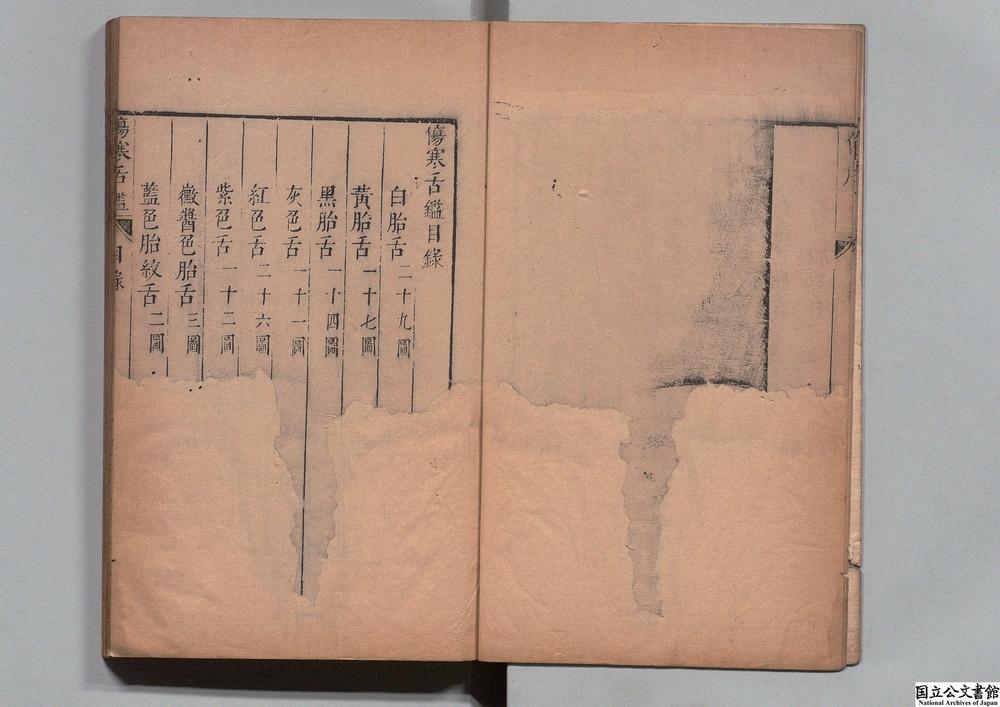 傷寒舌鑑目錄
白胎舌二十九圖
黃胎舌一十七圖
黑胎舌一十四圖
灰色舌一十一圖
紅色舌二十六圖
紫色舌一十二圖
黴醬色胎舌三圖
藍色胎紋舌二圖
傷寒舌鑑 目錄
国立公文書館
National Archives of Japan